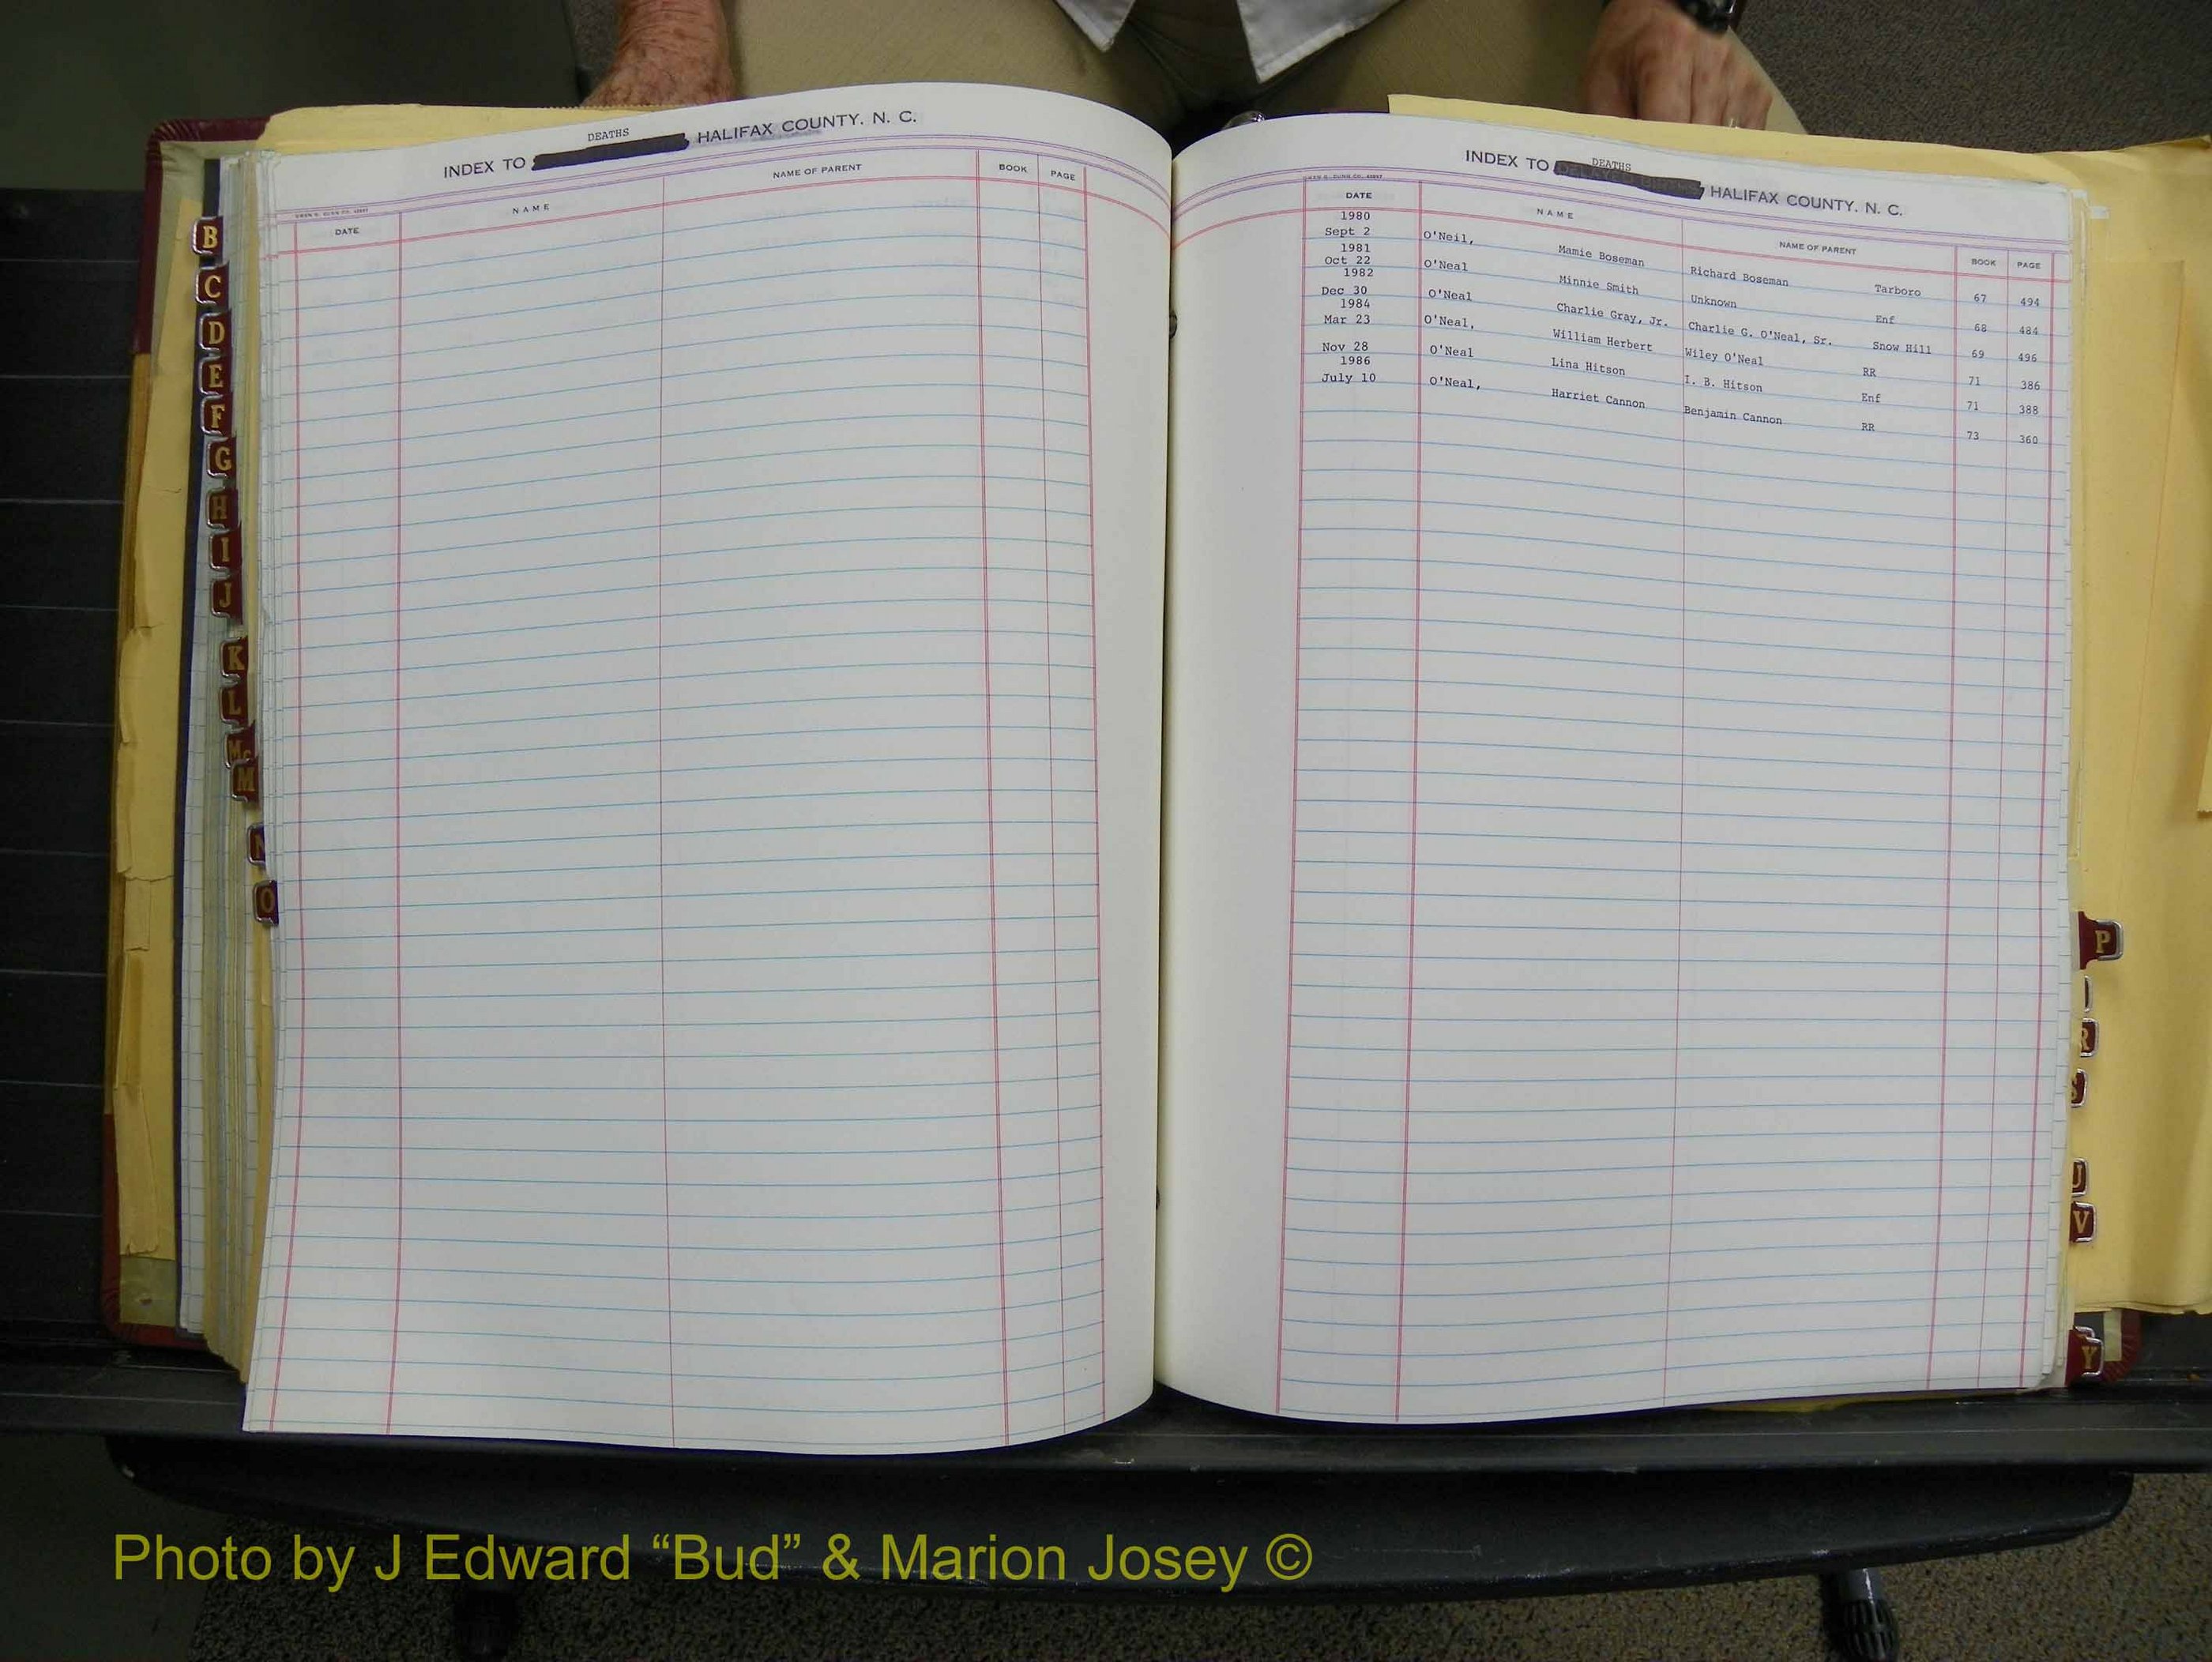 INDEX TO DEATHS HALIFAX COUNTY, N. C.
DATE NAME NAME OF PARENT BOOK PAGE
INDEX TO DEATHS HALIFAX COUNTY, N. C.
DATE NAME NAME OF PARENT BOOK PAGE
1980
Sept 2 O'Neil, Mamie Boseman Richard Boseman Tarboro 67 494
1981
Oct 22 O'Neal Minnie Smith Unknown Enf 68 484
1982
Dec 30 O'Neal Charlie Gray, Jr. Charlie G. O'Neal, Sr. Snow Hill 69 496
1984
Mar 23 O'Neal, William Herbert Wiley O'Neal RR 71 386
Nov 28 O'Neal Lina Hitson I. B. Hitson Enf 71 388
1986
July 10 O'Neal, Harriet Cannon Benjamin Cannon RR 73 360
B
C
D
E
F
G
H
I
J
K
L
Mc
M
N
O
P
R
S
U
V
Y
Photo by J Edward “Bud” & Marion Josey ©